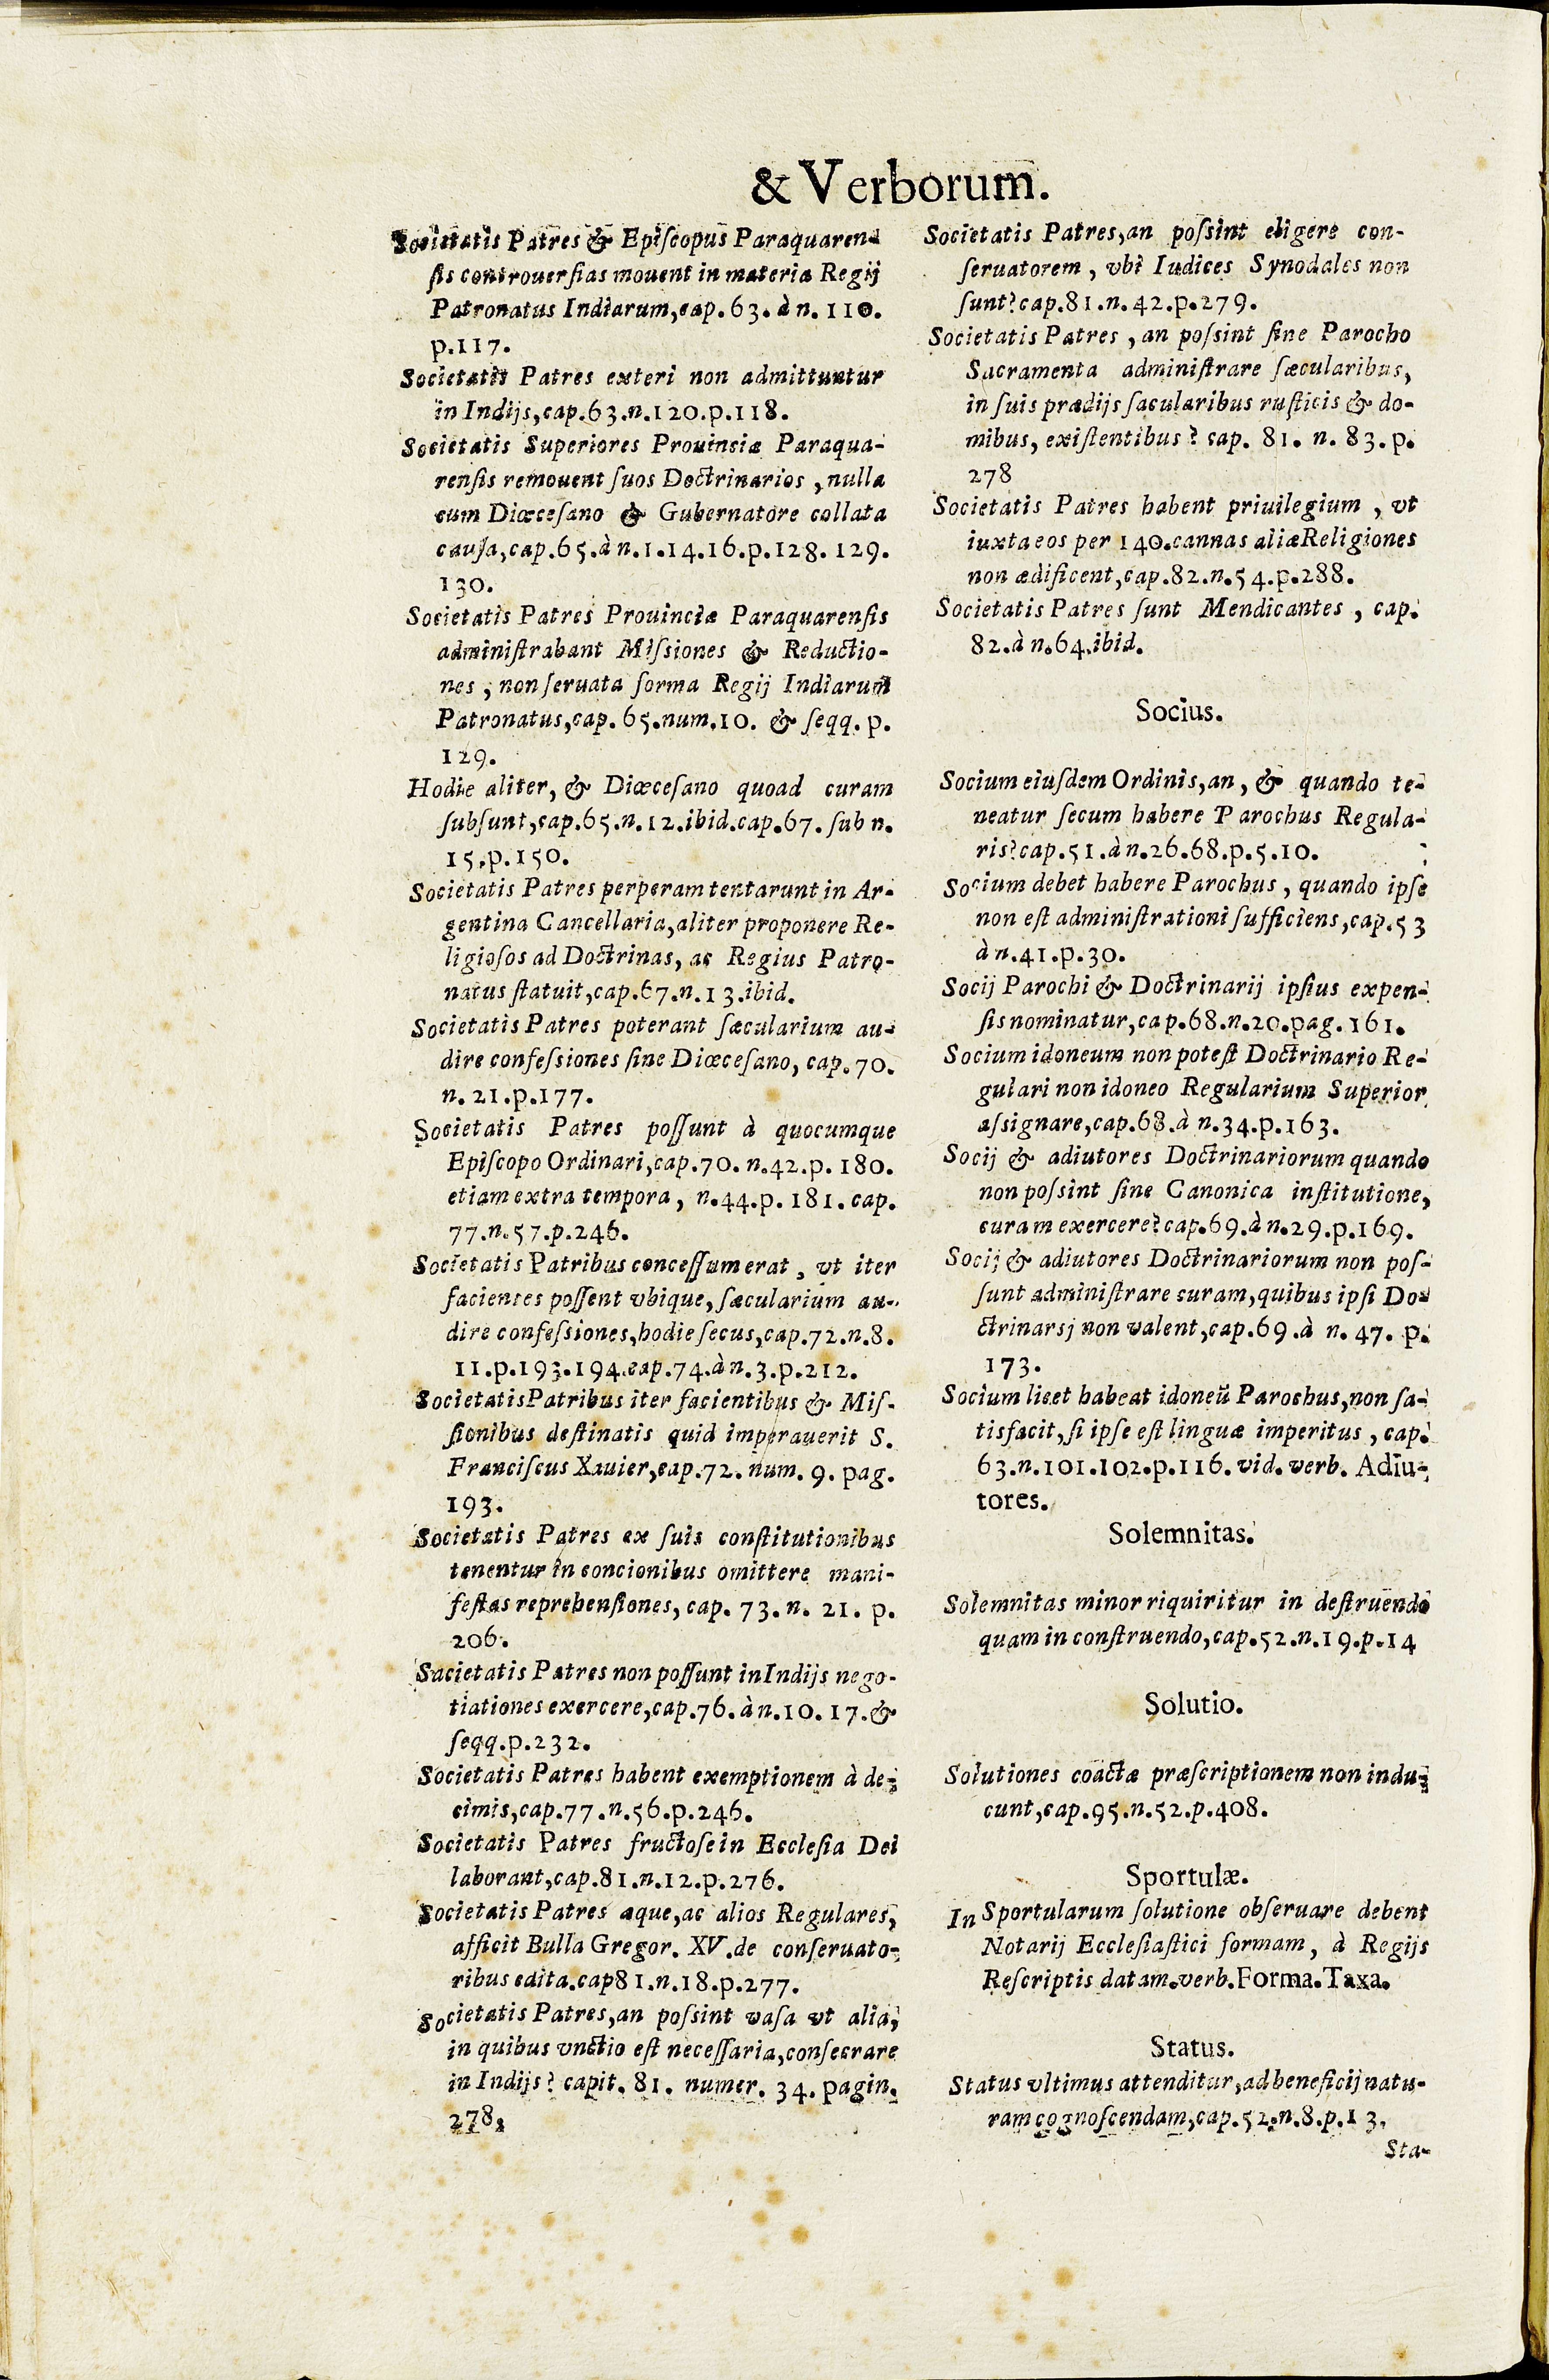 & Verborum.
Societatis Patres & Episcopus Paraquaren-
sis controuersias mouent in materia Regij
Patronatus Indiarum, cap. 63. à n. 110.
p.117.
Societatis Patres exteri non admittuntur
in Indijs, cap.63.n.120.p.118.
Societatis Superiores Prouinciæ Paraqua-
rensis remouent suos Doctrinarios, nulla
cum Diœcesano & Gubernatore collata
causa, cap.65.à n.1.14.16.p.128. 129.
130.
Societatis Patres Prouinciæ Paraquarensis
administrabant Missiones & Reductio-
nes, non seruata forma Regij Indiarum
Patronatus, cap. 65.num.10. & seqq. p.
129.
Hodie aliter, & Diœcesano quoad curam
subsunt, cap.65.n.12.ibid.cap.67. sub n.
15.p.150.
Societatis Patres perperam tentarunt in Ar-
gentina Cancellaria, aliter proponere Re-
ligiosos ad Doctrinas, ac Regius Patro-
natus statuit, cap.67.n.13.ibid.
Societatis Patres poterant sæcularium au-
dire confessiones sine Diœcesano, cap.70.
n. 21.p.177.
Societatis Patres possunt à quocumque
Episcopo Ordinari, cap.70. n.42.p. 180.
etiam extra tempora, n.44.p. 181. cap.
77.n.57.p.246.
Societatis Patribus concessum erat, vt iter
facientes possent vbique, sæcularium au-
dire confessiones, hodie secus, cap.72.n.8.
11.p.193.194.cap.74.à n.3.p.212.
Societatis Patribus iter facientibus & Mis-
sionibus destinatis quid imperauerit S.
Franciscus Xauier, cap.72. num. 9. pag.
193.
Societatis Patres ex suis constitutionibus
tenentur in concionibus omittere mani-
festas reprehensiones, cap. 73. n. 21. p.
206.
Sacietatis Patres non possunt in Indijs nego-
tiationes exercere, cap.76. à n.10. 17. &
seqq.p.232.
Societatis Patres habent exemptionem à de-
cimis, cap.77.n.56.p.246.
Societatis Patres fructose in Ecclesia Dei
laborant, cap.81.n.12.p.276.
Societatis Patres aque, ac alios Regulares,
afficit Bulla Gregor. XV. de conseruato-
ribus edita.cap81.n.18.p.277.
Societatis Patres, an possint vasa vt alia,
in quibus vnctio est necessaria, consecrare
in Indijs? capit. 81. numer. 34. pagin.
278.
Societatis Patres, an possint eligere con-
seruatorem, vbi Iudices Synodales non
sunt? cap.81.n.42.p.279.
Societatis Patres, an possint sine Parocho
Sacramenta administrare sæcularibus,
in suis prædijs sacularibus rusticis & do-
mibus, existentibus? cap. 81. n. 83. p.
278
Societatis Patres habent priuilegium, vt
iuxta eos per 140.cannas aliæ Religiones
non ædificent, cap.82.n.54.p.288.
Societatis Patres sunt Mendicantes, cap.
82.à n.64.ibid.
Socius.
Socium eiusdem Ordinis, an, & quando te-
neatur secum habere Parochus Regula-
ris? cap.51.à n.26.68.p.5.10.
Socium debet habere Parochus, quando ipse
non est administrationi sufficiens, cap.53
à n.41.p.30.
Socij Parochi & Doctrinarij ipsius expen-
sis nominatur, cap.68.n.20.pag.161.
Socium idoneum non potest Doctrinario Re-
gulari non idoneo Regularium Superior
assignare, cap.68.à n.34.p.163.
Socij & adiutores Doctrinariorum quando
non possint sine Canonica institutione,
curam exercere? cap.69.à n.29.p.169.
Socij & adiutores Doctrinariorum non pos-
sunt administrare curam, quibus ipsi Do-
ctrinarsj non valent, cap.69.à n. 47. p.
173.
Socium licet habeat idoneũ Parochus, non sa-
tisfacit, si ipse est linguæ imperitus, cap.
63.n.101.102.p.116. vid. verb. Adiu-
tores.
Solemnitas.
Solemnitas minor riquiritur in destruendo
quam in construendo, cap.52.n.19.p.14
Solutio.
Solutiones coactæ præscriptionem non indu-
cunt, cap.95.n.52.p.408.
Sportulæ.
In Sportularum solutione obseruare debent
Notarij Ecclesiastici formam, à Regijs
Rescriptis datam.verb.Forma.Taxa.
Status.
Status vltimus attenditur, ad beneficij natu-
ram cognoscendam, cap.52.n.8.p.13.
Sta-